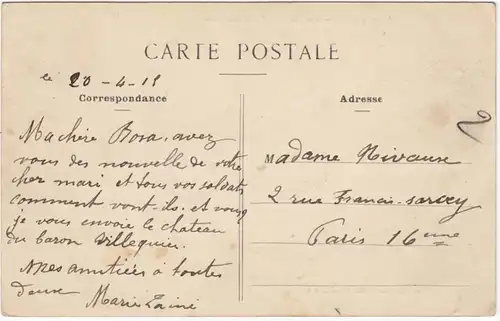 CARTE POSTALE
le 20-4-15
Correspondance
Ma chère Bosa. avez
vous des nouvelle de votre
cher mari et tous vos soldats
comment vont ils. et vous,
je vous envoie le chateau
du baron Villequier.
Mes amitiées à toutes
deux Marie
Adresse
Madame Nivause
2 rue Francis-sarcey
Paris 16eme